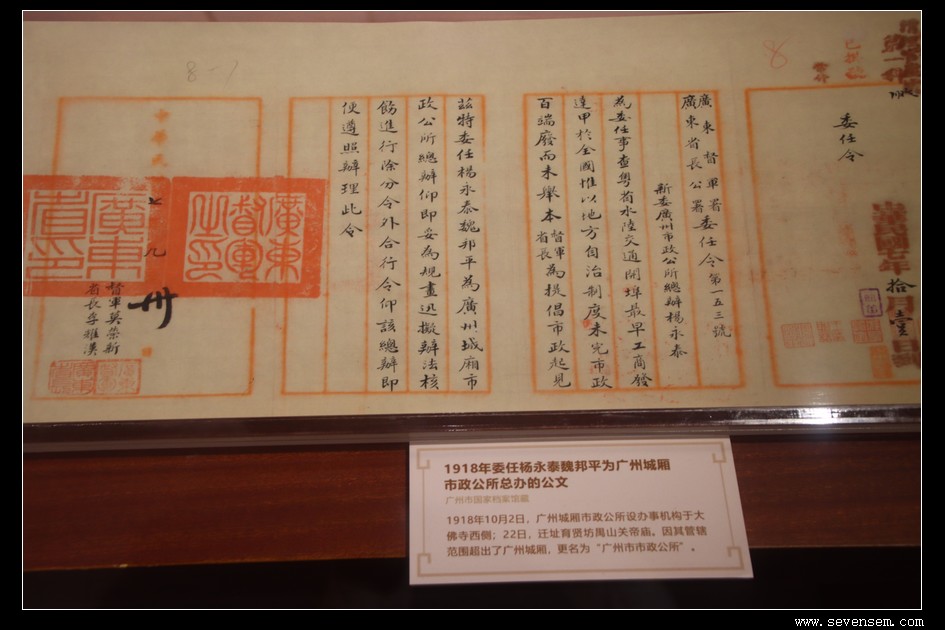 委任令
廣東督軍署
廣東省長公署委任令第一五三號
新委廣州市政公所總辦楊永泰
為委任事查粤省水陸交通開埠最早工商發
達甲於全國惟以地方自治制度未完市政
百端廢而未舉本督軍省長為提倡市政起見
茲特委任楊永泰魏邦平為廣州城廂市
政公所總辦仰即妥為規畫迅擬辦法核
飭進行除分令外合行令仰該總辦即
便遵照辦理此令
中華民
督軍莫榮新
省長李耀漢
8-1
8
廣東督軍之印
廣東省長印
拾月壹日
1918年委任杨永泰魏邦平为广州城厢
市政公所总办的公文
广州市国家档案馆藏
1918年10月2日，广州城厢市政公所设办事机构于大
佛寺西侧；22日，迁址育贤坊禺山关帝庙。因其管辖
范围超出了广州城厢，更名为“广州市市政公所”。
www.sevensem.com